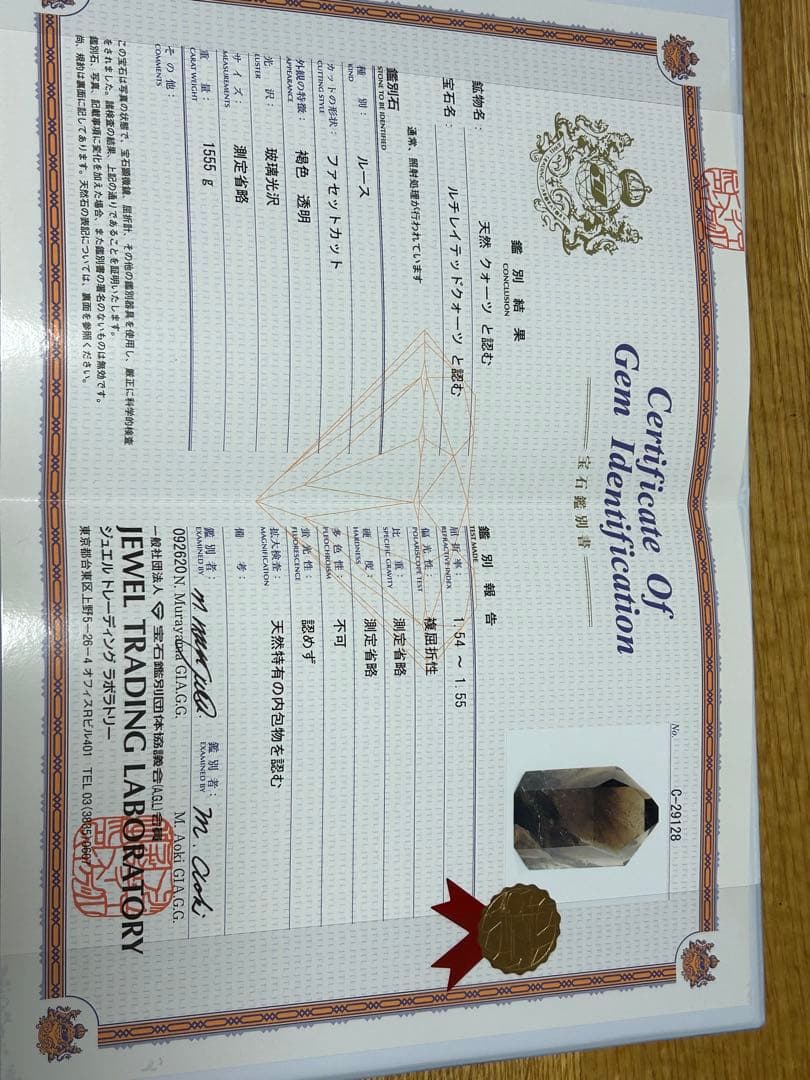 Certificate Of
Gem Identification
宝石鑑別書
No. C-29128
鑑別結果
CONCLUSION
鉱物名: 天然 クォーツ と認む
宝石名: ルチレイテッドクォーツ と認む
通常、照射処理が行われています
鑑別石
STONE TO BE IDENTIFIED
種別: ルース
KIND
カットの形状: ファセットカット
CUTTING STYLE
外観の特徴: 褐色 透明
APPEARANCE
光沢: 玻璃光沢
LUSTER
サイズ: 測定省略
MEASUREMENTS
重量: 1555 g
CARAT WEIGHT
その他:
COMMENTS
この宝石は写真の状態で、宝石顕微鏡、屈折計、その他の鑑別器具を使用し、厳正に科学的検査
をされました。諸検査の結果、上記の通りであることを証明いたします。
鑑別石、写真、記載事項に変化を加えた場合、また鑑別書の署名のないものは無効です。
尚、規約は裏面に記してあります。天然石の表記については、裏面を参照ください。
鑑別報告
TEST MADE
屈折率: 1.54 ~ 1.55
REFRACTIVE INDEX
偏光性: 複屈折性
POLARISCOPE TEST
比重: 測定省略
SPECIFIC GRAVITY
硬度: 測定省略
HARDNESS
多色性: 不可
PLEOCHROISM
蛍光性: 認めず
FLUORESCENCE
拡大検査: 天然特有の内包物を認む
MAGNIFICATION
備考:
鑑別者: 鑑別者:
EXAMINED BY EXAMINED BY
092620 N. Murayama G.I.A.G.G. M. Aoki G.I.A.G.G.
一般社団法人 宝石鑑別団体協議会(A.G.L)会員
JEWEL TRADING LABORATORY
ジュエル トレーディング ラボラトリー
東京都台東区上野5-26-4 オフィスRビル401 TEL 03